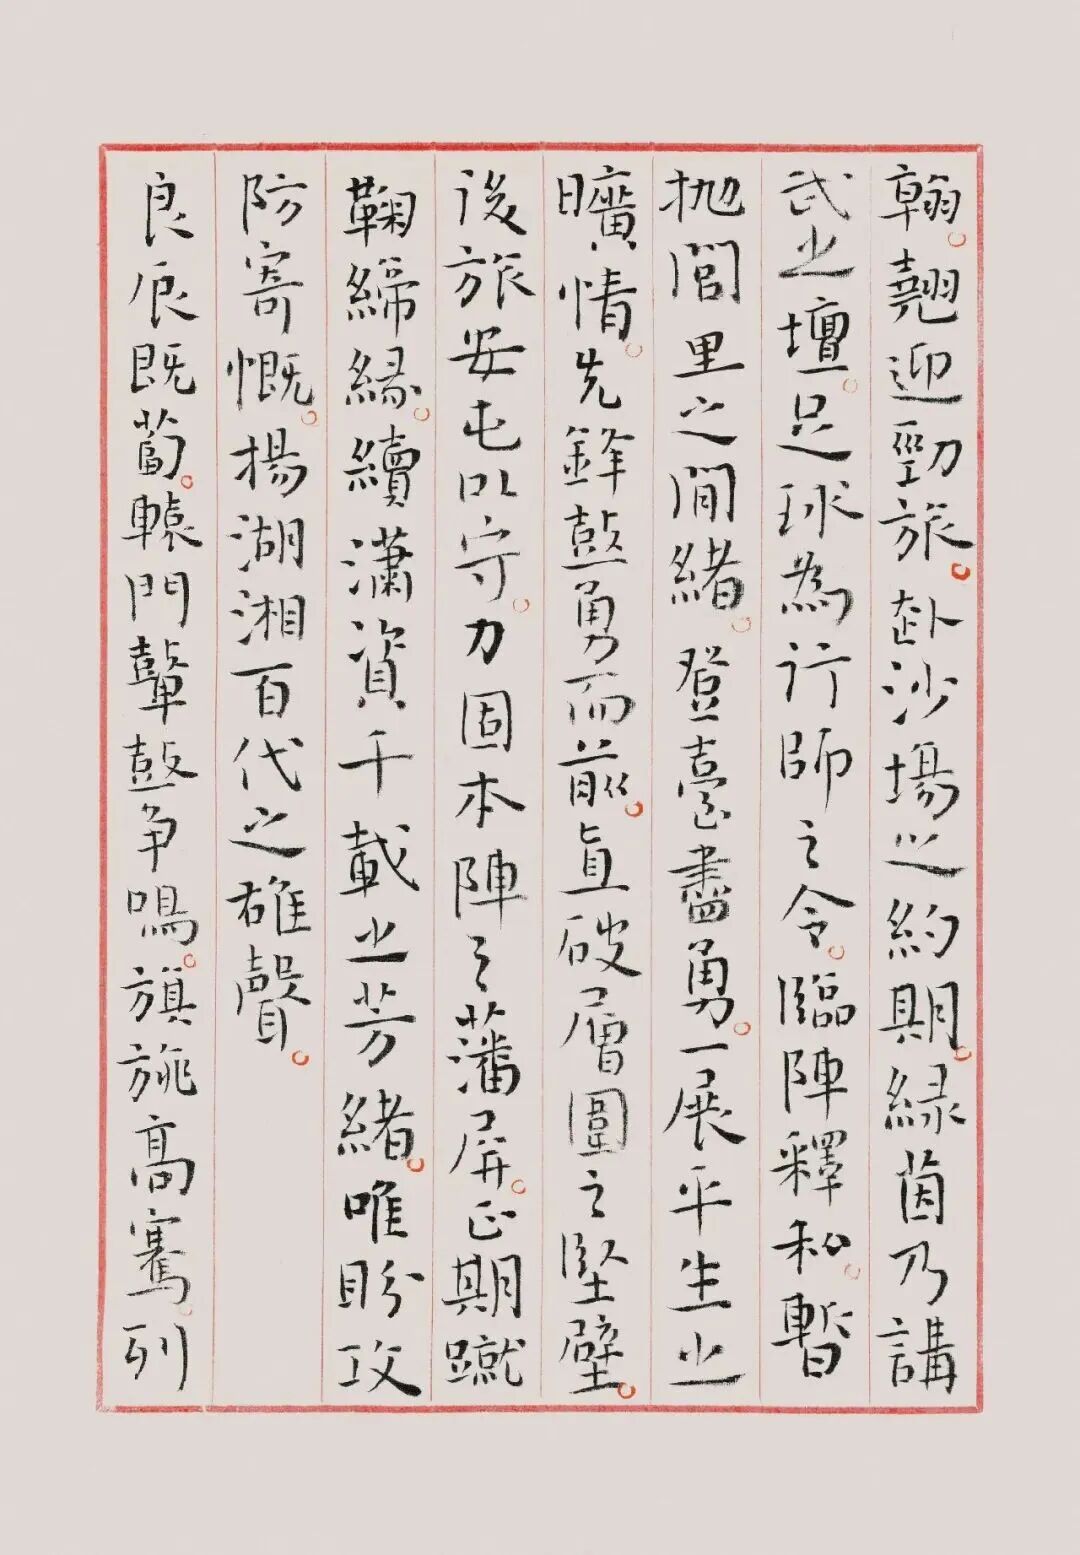 翰。翹迎勁旅。赴沙場之約期。緑茵乃講
武之壇。足球為行師之令。臨陣釋私。暫
抛閭里之閒緒。登臺盡勇。一展平生之
曠情。先鋒鼓勇而前。直破層圍之堅壁。
後旅安屯以守。力固本陣之藩屏。正期蹴
鞠締緣。續瀟資千載之芳緒。唯盼攻
防寄慨。揚湖湘百代之雄聲。
良辰既蔔。轅門鼙鼓争鳴。旗旐高騫。列